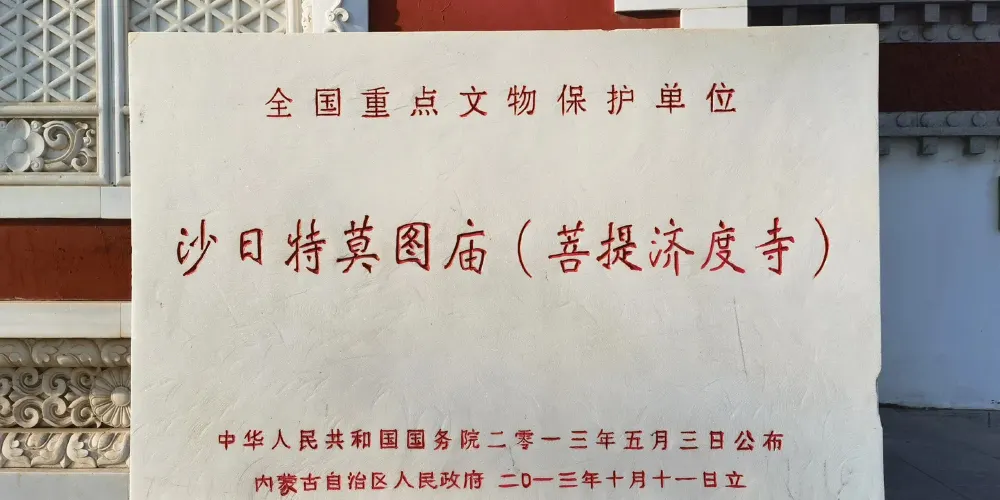 全国重点文物保护单位
沙日特莫图庙（菩提济度寺）
中华人民共和国国务院二零一三年五月三日公布
内蒙古自治区人民政府 二0一三年十月十一日立